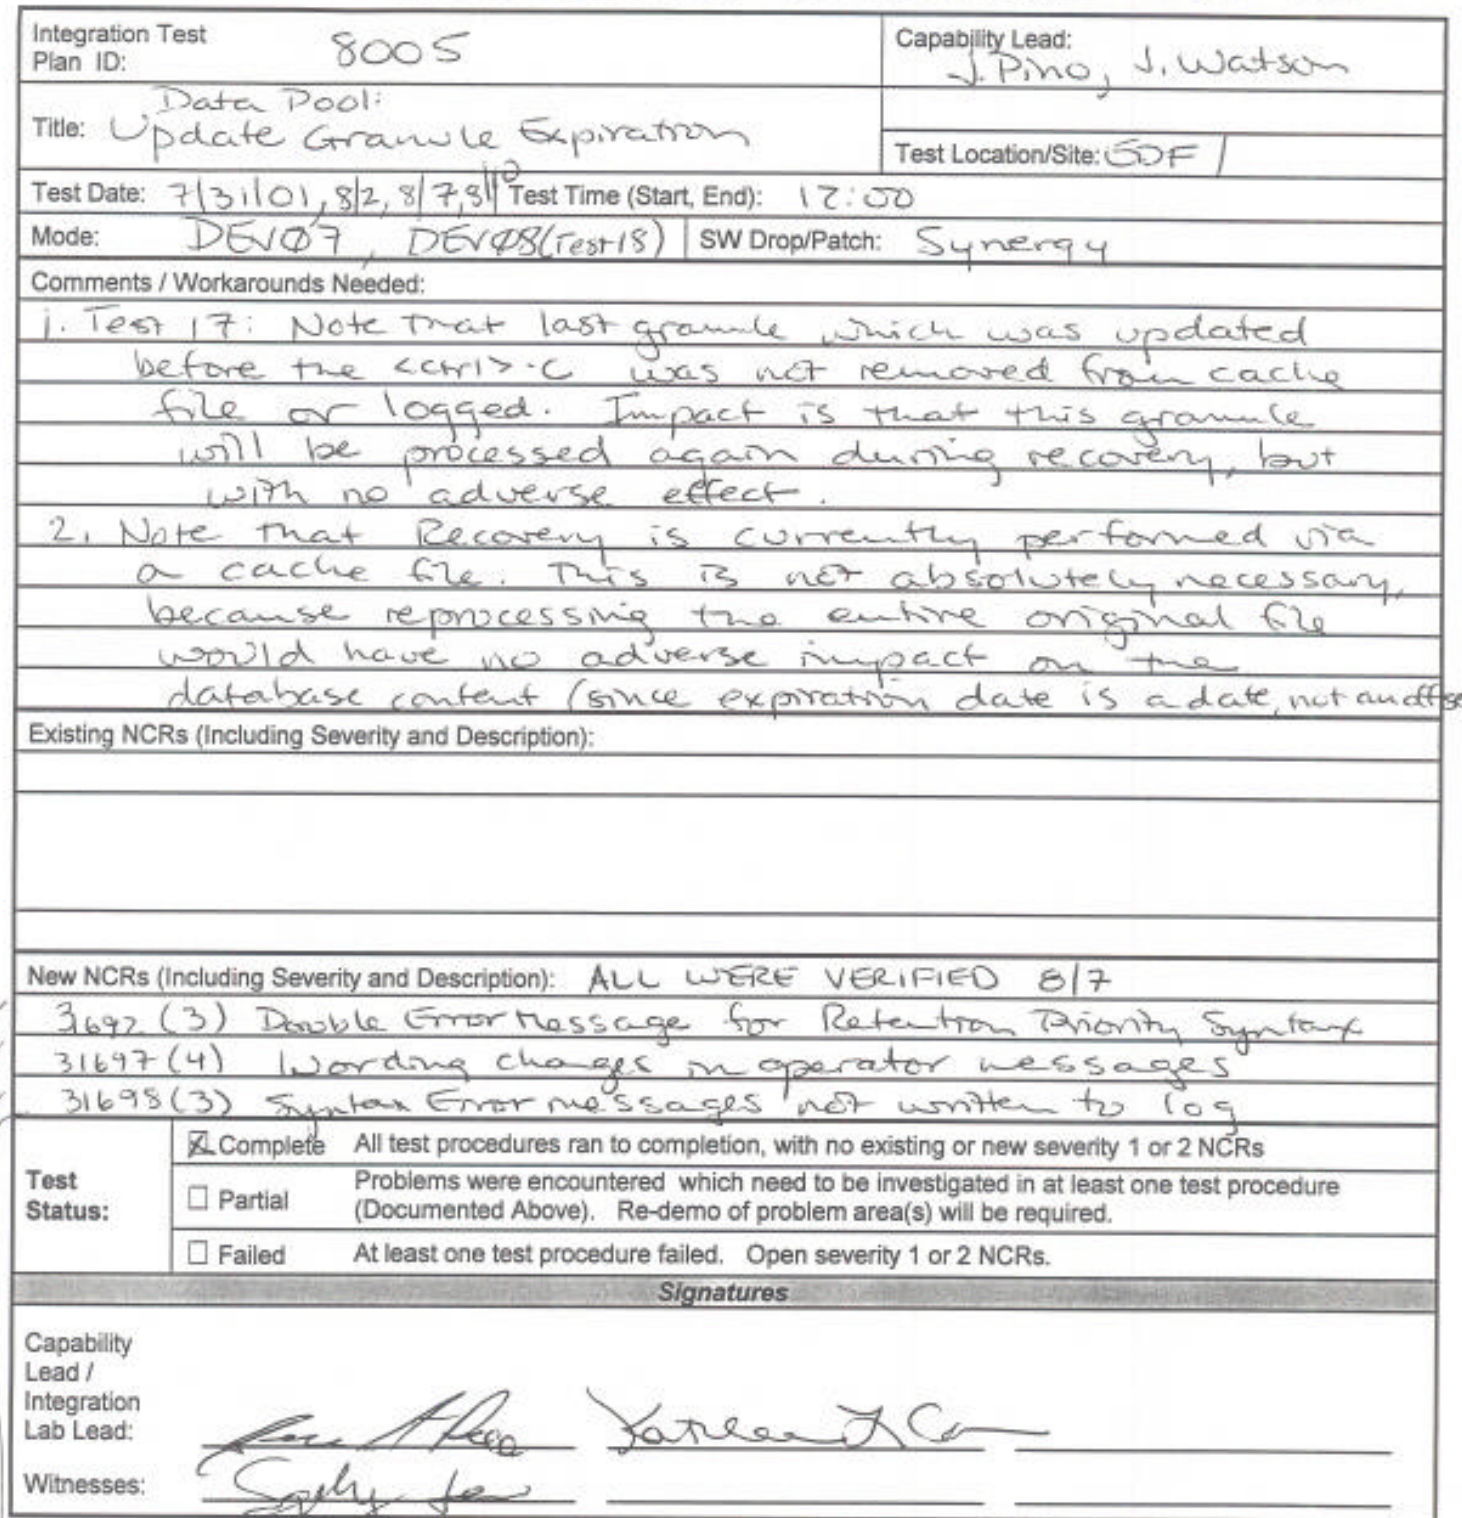 Integration Test Plan ID: 8005
Capability Lead: J. Pino, J. Watson
Title: Data Pool:
Update Granule Expiration
Test Location/Site:
Test Date: 7/31/01, 8/2, 8/7, Test Time (Start, End): 12:00
Mode: DEVØ7, DEVØ8(Test 18) SW Drop/Patch: Synergy
Comments / Workarounds Needed:
1. Test 17: Note that last granule which was updated
before the <ctrl>-C was not removed from cache
file or logged. Impact is that this granule
will be processed again during recovery, but
with no adverse effect.
2. Note that Recovery is currently performed via
a cache file. This is not absolutely necessary,
because reprocessing the entire original file
would have no adverse impact on the
database content (since expiration date is a date, not an offse
Existing NCRs (Including Severity and Description):
New NCRs (Including Severity and Description): ALL WERE VERIFIED 8/7
31692 (3) Double Error Message for Retention Priority Syntax
31697 (4) Wording changes in operator messages
31698 (3) Syntax Error messages not written to log
Test Status:
Complete All test procedures ran to completion, with no existing or new severity 1 or 2 NCRs
Partial Problems were encountered which need to be investigated in at least one test procedure
(Documented Above). Re-demo of problem area(s) will be required.
Failed At least one test procedure failed. Open severity 1 or 2 NCRs.
Signatures
Capability
Lead /
Integration
Lab Lead:
Witnesses: